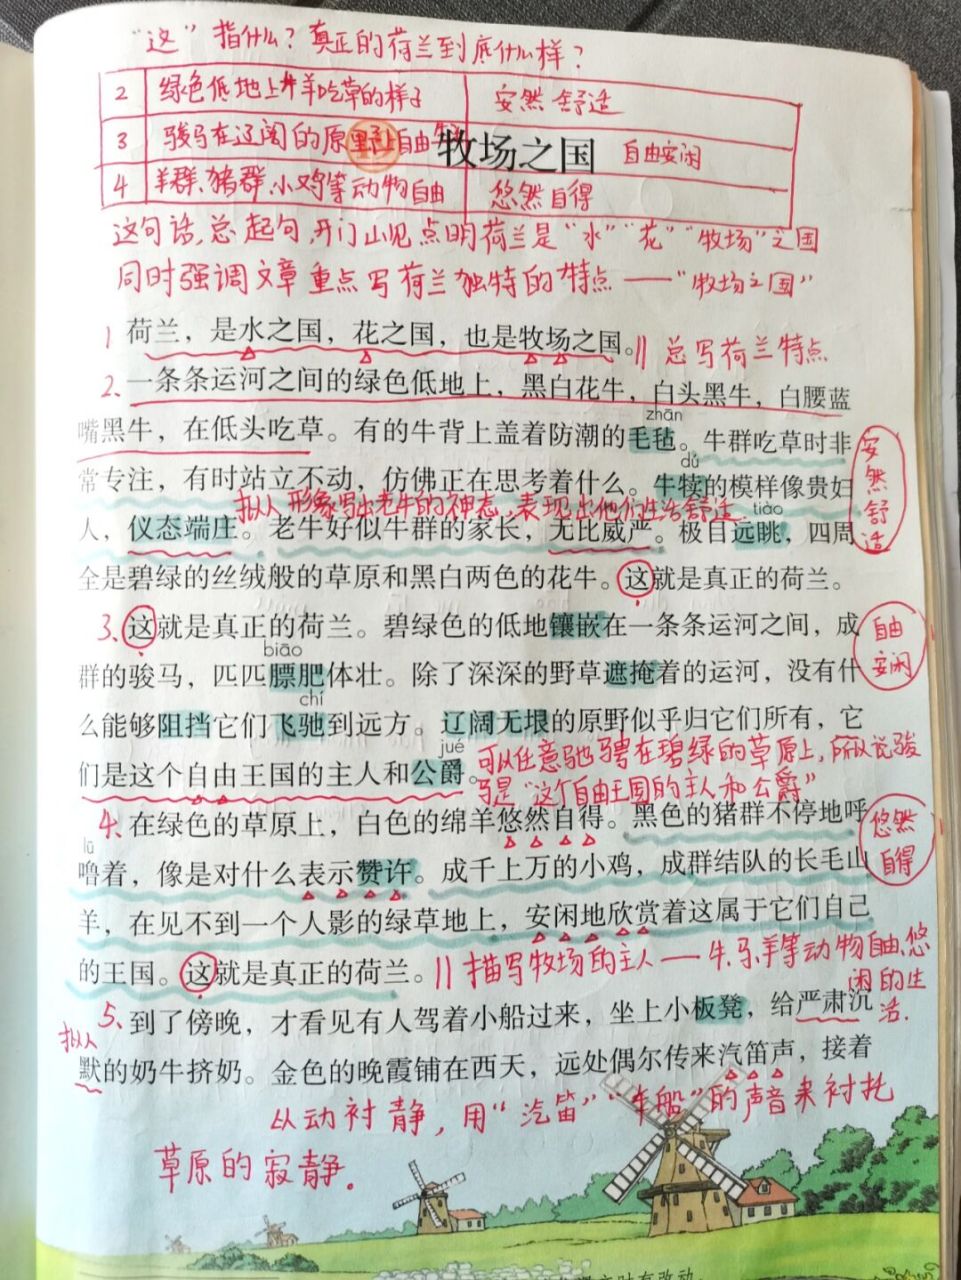 “这”指什么？真正的荷兰到底什么样？
2 绿色低地上牛羊吃草的样子 安然舒适
3 骏马在辽阔的原野上自由 自由安闲
牧场之国
4 羊群、猪群、小鸡等动物自由 悠然自得
这句话，总起句，开门山见点明荷兰是“水”“花”“牧场”之国
同时强调文章重点写荷兰独特的特点——“牧场之国”
1 荷兰，是水之国，花之国，也是牧场之国。‖总写荷兰特点
2、一条条运河之间的绿色低地上，黑白花牛，白头黑牛，白腰蓝
zhān
嘴黑牛，在低头吃草。有的牛背上盖着防潮的毛毡。牛群吃草时非
dú
常专注，有时站立不动，仿佛正在思考着什么。牛犊的模样像贵妇
拟人 形象写出老牛的神态，表现出他们生活舒适
tiào
人，仪态端庄。老牛好似牛群的家长，无比威严。极目远眺，四周
安然舒适
全是碧绿的丝绒般的草原和黑白两色的花牛。这就是真正的荷兰。
3、这就是真正的荷兰。碧绿色的低地镶嵌在一条条运河之间，成
自由安闲
biāo
群的骏马，匹匹膘肥体壮。除了深深的野草遮掩着的运河，没有什
chí
么能够阻挡它们飞驰到远方。辽阔无垠的原野似乎归它们所有，它
jué
们是这个自由王国的主人和公爵。
可以任意驰骋在碧绿的草原上，所以说骏
马是“这个自由王国的主人和公爵”
4、在绿色的草原上，白色的绵羊悠然自得。黑色的猪群不停地呼
悠然自得
lū
噜着，像是对什么表示赞许。成千上万的小鸡，成群结队的长毛山
羊，在见不到一个人影的绿草地上，安闲地欣赏着这属于它们自己
的王国。这就是真正的荷兰。‖描写牧场的主人——牛、马、羊等动物自由、悠
闲的生活.
5、到了傍晚，才看见有人驾着小船过来，坐上小板凳，给严肃沉
拟人
默的奶牛挤奶。金色的晚霞铺在西天，远处偶尔传来汽笛声，接着
从动衬静，用“汽笛”“船”的声音来衬托
草原的寂静。